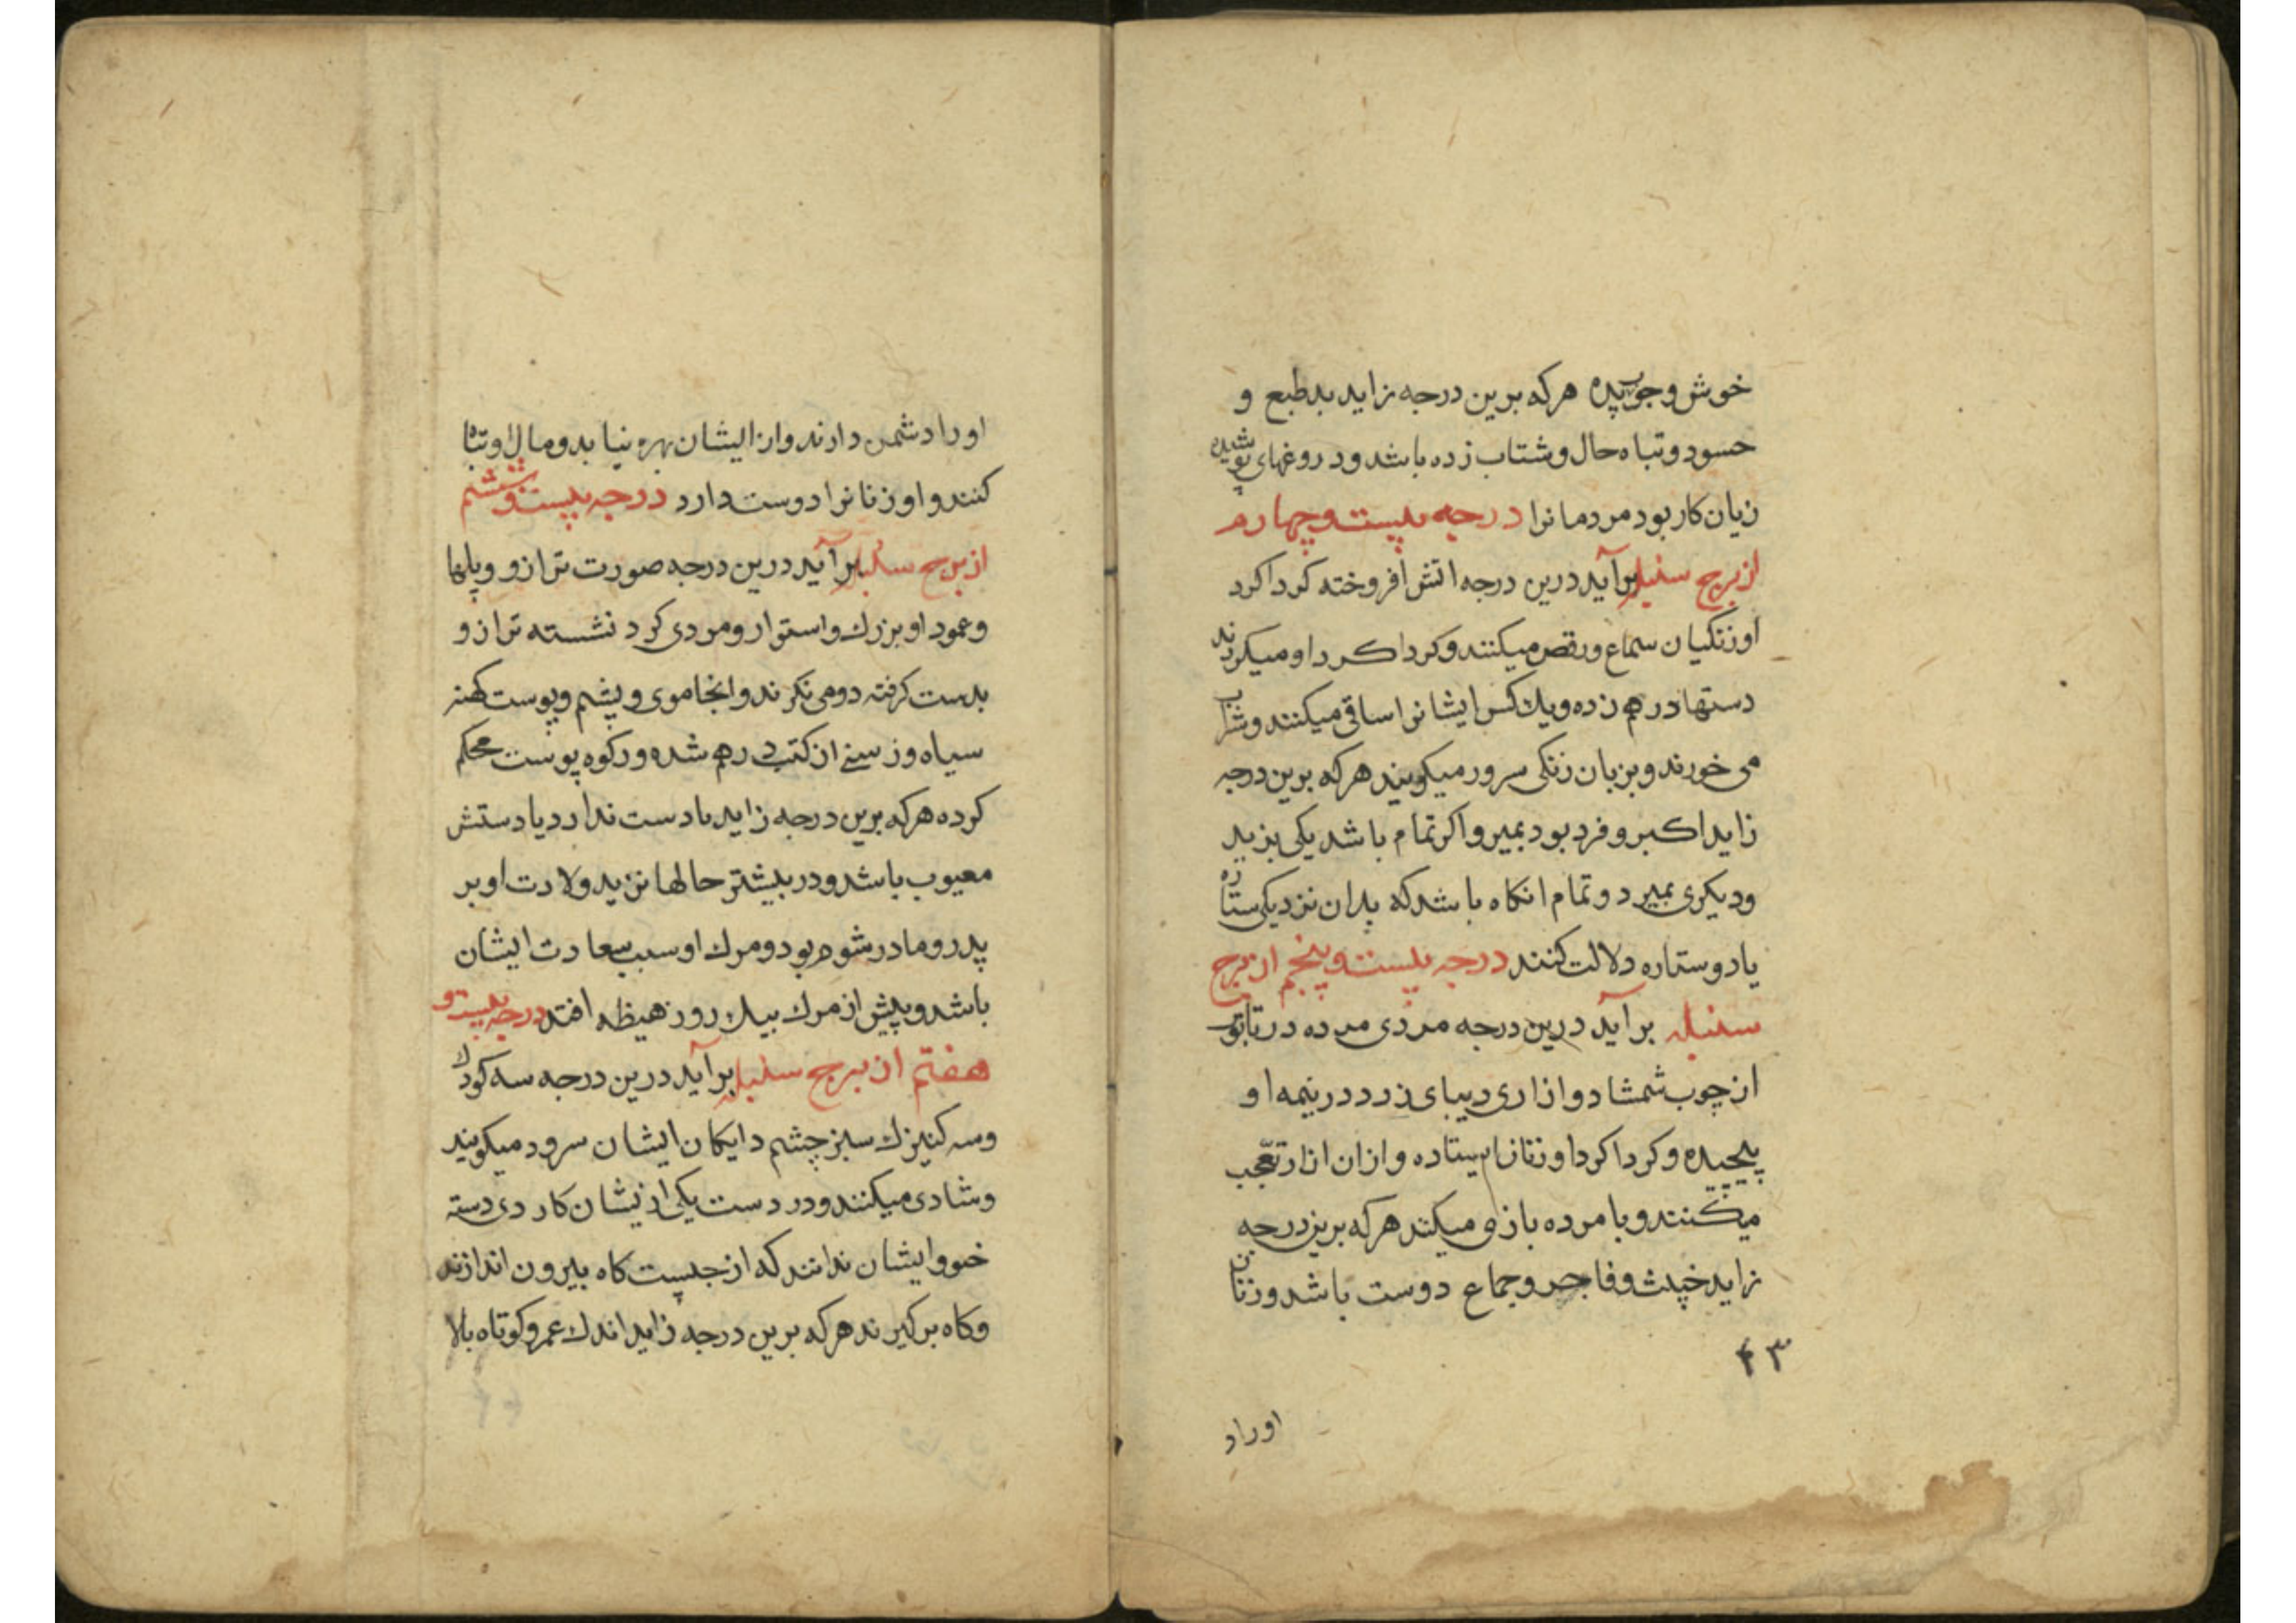 خوش و جوی پده هرکه برین درجه زاید بدطبع و
حسود و تباه حال و شتاب زده باشد و دروغهای پوشیده
زیان کار بود مردمانرا درجه بیست و چهارم
از برج سنبله برآید درین درجه اتش افروخته کرداکرد
او زنکیان سماع و رقص میکنند و کرداکرد او میکردند
دستها درهم زده و یک کس ایشانرا ساقی میکنند و شراب
می خورند و بزبان زنکی سرور میکویند هرکه برین درجه
زاید اکبر و فرد بود بمیرد و اکر تمام باشد یکی بزید
و دیکری بمیرد و تمام انکاه باشد که بدان نزدیکی ستاره
یا دو ستاره دلالت کنند درجه بیست و پنجم از برج
سنبله برآید درین درجه مردی مرده در تابوت
از چوب شمشاد و ازاری دیبای زرد در نیمه او
پیچیده و کرداکرد او زنان ایستاده و ازان ازار تعجب
میکنند و با مرده بازی میکند هرکه برین درجه
زاید خبیث و فاجر و جماع دوست باشد و زنان
۴۳
اوراد
اورا دشمن دارند و از ایشان بهره نیابد و مال او تباه
کنند و او زنانرا دوست دارد درجه بیست و ششم
از برج سنبله برآید درین درجه صورت ترازو و پلها
و عمود او بزرك و استوار و مردی کرد نشسته ترازو
بدست کرفته دو می نکرند و انجا موی و پشم و پوست کهنه
سیاه و ز سنی از کتب درهم شده و رکوه پوست محکم
کرده هرکه برین درجه زاید یا دست ندارد یا دستش
معیوب باشد و در بیشتر حالها نزید ولادت او بر
پدر و مادر شوم بود و مرك او سبب سعادت ایشان
باشد و پیش از مرك بیك روز هیظه افتد درجه بیست و
هفتم از برج سنبله برآید درین درجه سه کودك
و سه کنیزك سبز چشم دایکان ایشان سرود میکویند
و شادی میکنند و در دست یکی ازیشان کاردی دسته
خود ایشان ندانند که از جیست کاه بیرون اندازند
و کاه برکیرند هرکه برین درجه زاید اندك عمر و کوتاه بالا